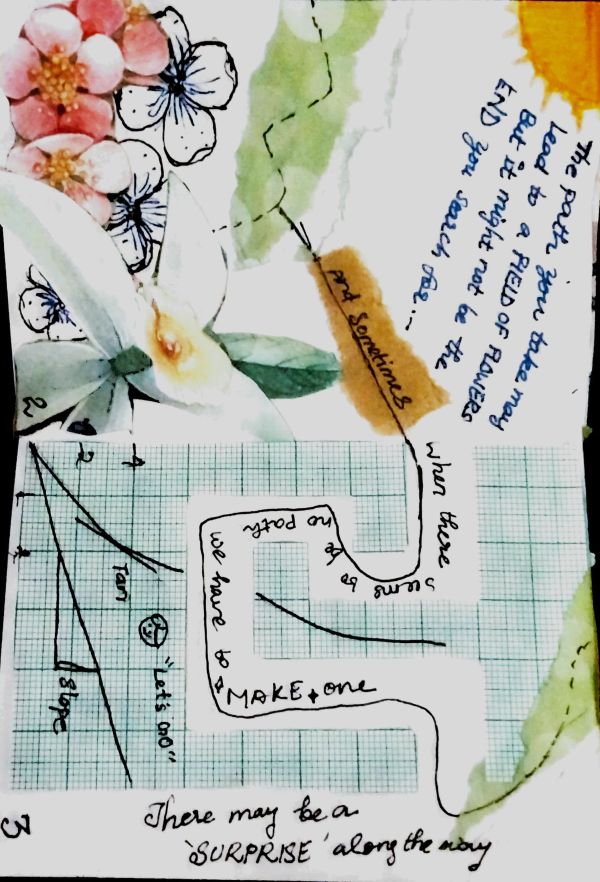 The path you take may
Lead to a FIELD OF FLOWERS
But it might not be the
END you search for...
And sometimes
2
when there
seems to
be
no path
we have to
MAKE one
There may be a
'SURPRISE' along the way
"Let's GO"
4
Tan
2
Slope
3